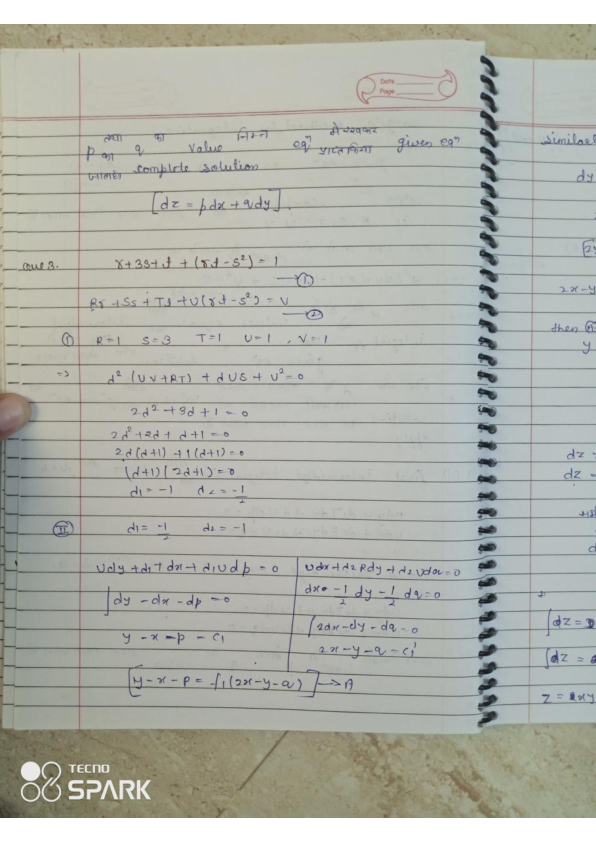 Date
Page
तथा का निम्न में रखकर
p का q value eqⁿ प्राप्त किया given eqⁿ
complete solution
[dz = pdx + qdy].
Que 3. r+3s+t + (rt-s²) = 1
→ ①
Rr + Ss + Tt + U(rt-s²) = V
→ ②
Ⓘ R=1 S=3 T=1 U=1, V=1
=> λ² (UV+RT) + λUS + U² = 0
2λ² + 3λ + 1 = 0
2λ² + 2λ + λ + 1 = 0
2λ(λ+1) + 1(λ+1) = 0
(λ+1) (2λ+1) = 0
λ1 = -1 λ2 = -1/2
Ⓘⓘ λ1 = -1/2 λ2 = -1
Udy + λ1 Tdx + λ1 Udp = 0
∫dy - dx - dp = 0
y - x - p = c1
Udx + λ2 Rdy + λ2 Udq = 0
dx - 1/2 dy - 1/2 dq = 0
∫2dx - dy - dq = 0
2x - y - q = c1'
[y - x - p = f1(2x - y - q)] → A
dy
2x-y
then
y
dz =
dz -
∫dz =
∫dz =
TECNO
SPARK